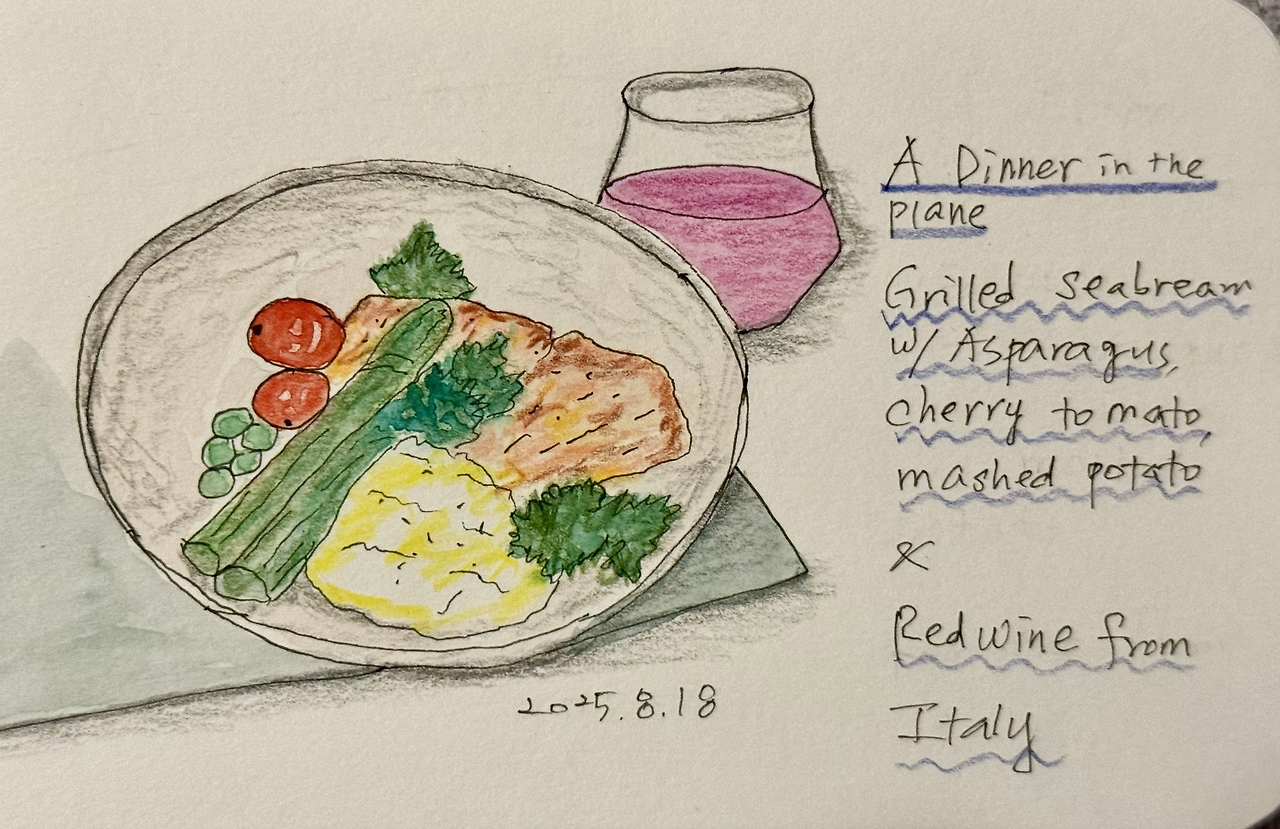 A Dinner in the
plane
Grilled seabream
w/ Asparagus,
cherry tomato,
mashed potato
&
Red wine from
Italy
2025.8.18